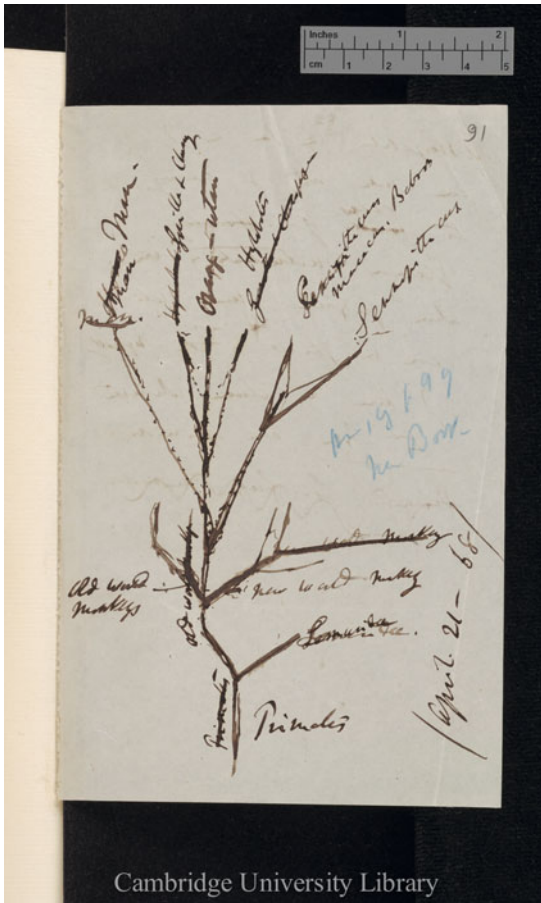 Inches 1 2
cm 1 2 3 4 5
91
Man
Gorilla & Chimp
Orang-utan
Hylobates
Cercopithecus
Macacus. Baboon
Semnopithecus
New world monkey
Old world
monkeys
new world monkey
Lemuridae.
Primates
Primates
(April 21 - 68)
Cambridge University Library